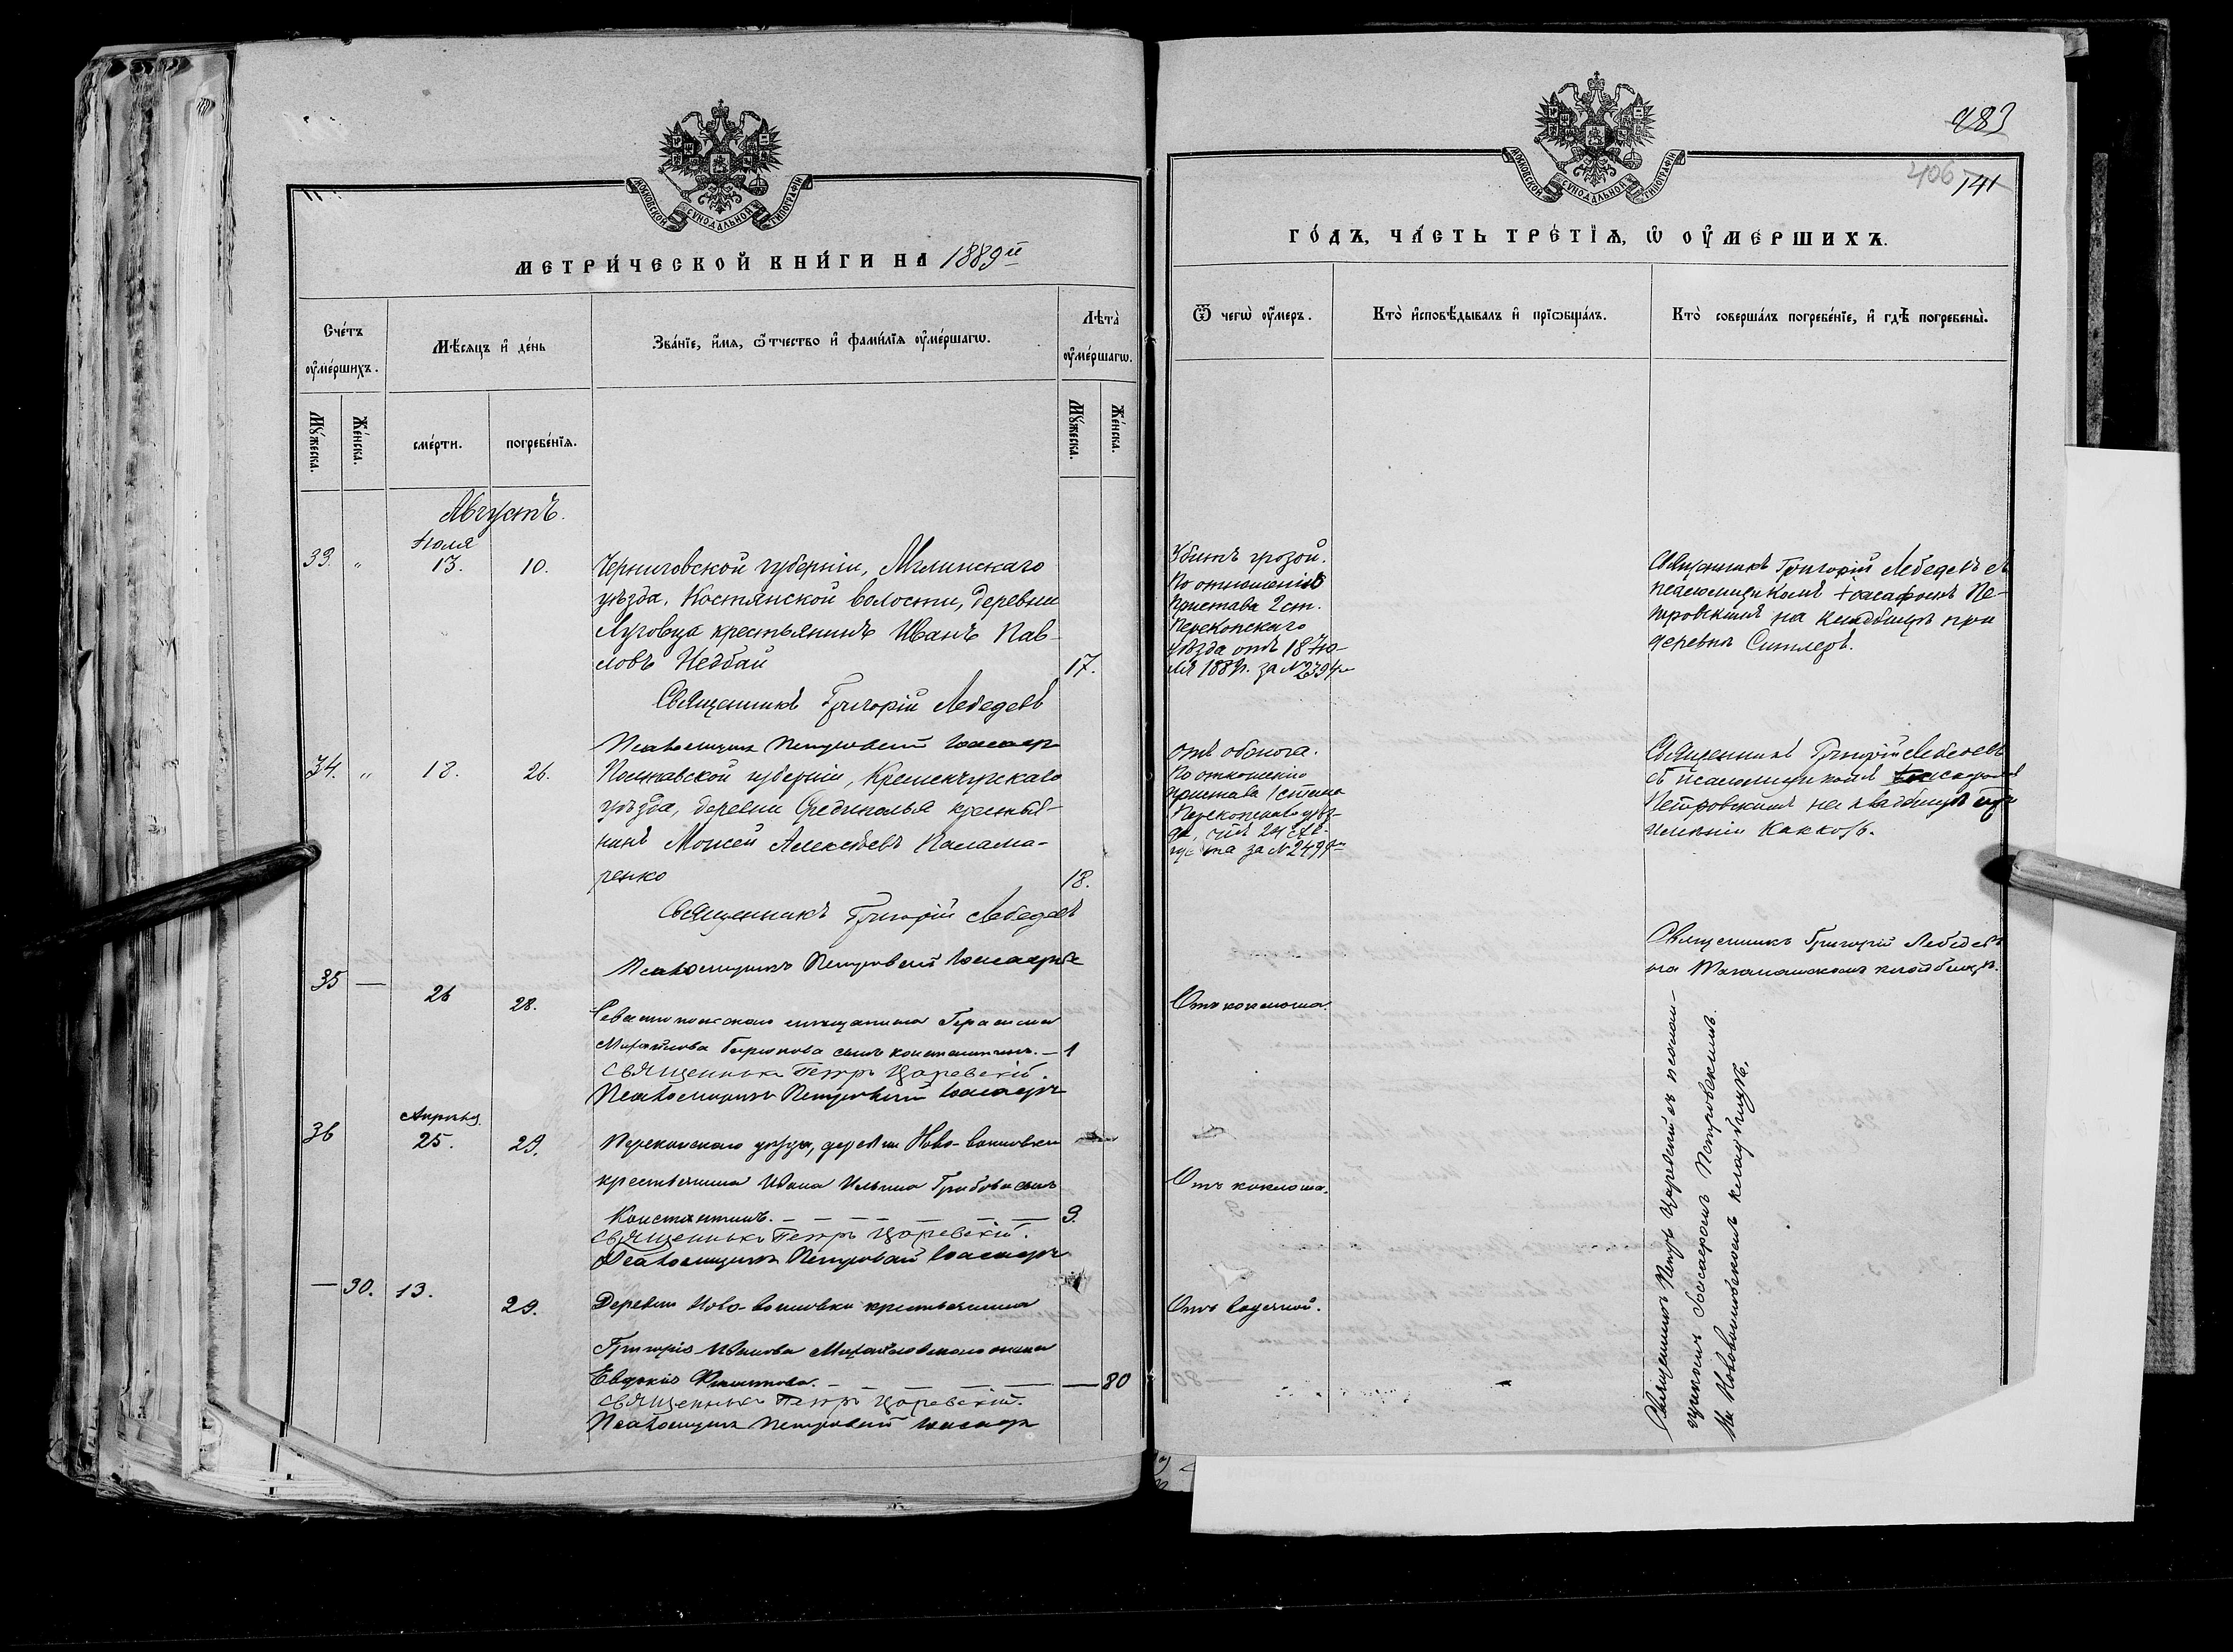 МОСКОВСКОЙ СѴНОДАЛЬНОЙ ТИПОГРАФІИ
МЕТРИ́ЧЕСКОЙ КНИ́ГИ НА 1889й
Сче́тъ оу҆ме́ршихъ.
Мѣ́сяцъ и҆ де́нь
Зва́нїе, и҆́мя, ѻ҆́тчество и҆ фами́лїя оу҆ме́ршагѡ.
Лѣта̀ оу҆ме́ршагѡ.
Мꙋ́жеска.
Же́нска.
сме́рти.
погребе́нїя.
Мꙋ́жеска.
Же́нска.
Августъ.
Іюля
33. " 13. 10. Черниговской губерніи, Мглинскаго
уѣзда, Костянской волости, деревни
Луговца крестьянинъ Иванъ Пав-
ловъ Недбай 17.
Священникъ Григорій Лебедевъ
Псаломщикъ Петровскій Іоасафъ
34. " 18. 26. Полтавской губерніи, Кременчугскаго
уѣзда, деревни крестья-
нинъ Моисей Алексѣевъ Палама-
ренко 18.
Священникъ Григорій Лебедевъ
Псаломщикъ Петровскій Іоасафъ
35 — 26 28. Севастопольскаго мѣщанина Герасима
Михайлова Бирюкова сынъ Константинъ. — 1
Священникъ Петръ Царевскій
Псаломщикъ Петровскій Іоасафъ
Апрѣля
36 25. 29. Перекопскаго уѣзда, деревни Ново-
крестьянина Ивана Ильина Грибова сынъ
Константинъ. — — — 9.
Священникъ Петръ Царевскій.
Псаломщикъ Петровскій Іоасафъ
— 30. 13. 29. Деревни Ново- крестьянина
Григорія Иванова Михайловскаго жена
Евдокія — — 80
Священникъ Петръ Царевскій.
Псаломщикъ Петровскій Іоасафъ
483
406 141
МОСКОВСКОЙ СѴНОДАЛЬНОЙ ТИПОГРАФІИ
ГО́ДЪ, ЧА́СТЬ ТРЕ́ТЇѦ, Ѡ҆ ОУ҆МЕ́РШИХЪ.
Ѿ чегѡ̀ оу҆́меръ.
Кто̀ и҆сповѣ́дывалъ и҆ прїѡбща́лъ.
Кто̀ соверша́лъ погребе́нїе, и҆ гдѣ̀ погребены̀.
Убитъ грозой.
По отношенію
Пристава 2 ст.
Перекопскаго
уѣзда отъ 18 Ію-
ля 1889г. за №2394м
Священникъ Григорій Лебедевъ съ
псаломщикомъ Іоасафомъ Пе-
тровскимъ на кладбищѣ при
деревнѣ Ситлеръ.
Отъ обжога.
По отношенію
пристава 1 стана
Перекопскаго уѣз-
да, отъ 24 Ав-
густа за №2499м
Священникъ Григорій Лебедевъ
съ псаломщикомъ Іоасафомъ
Петровскимъ на кладбищѣ при
имѣніи
Отъ коклюша.
Священникъ Григорій Лебедевъ
на кладбищѣ.
Отъ коклюша.
Отъ водяной.
Священникъ Петръ Царевскій съ псалом-
щикомъ Іоасафомъ Петровскимъ.
На кладбищѣ.